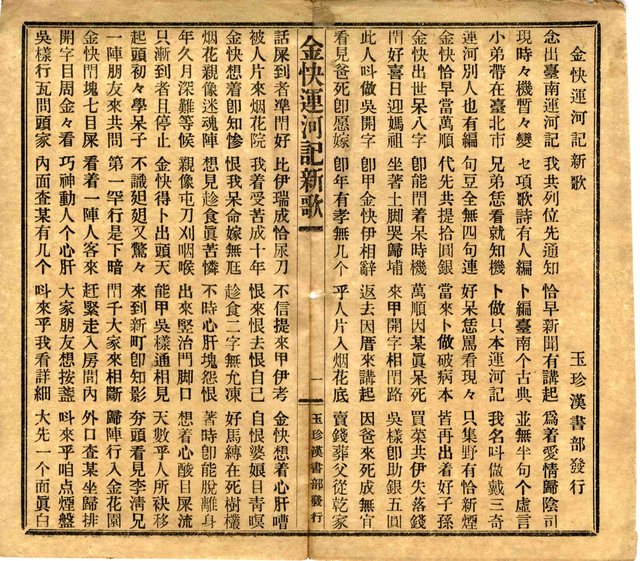 金快運河記新歌　玉珍漢書部發行
念出臺南運河記　我共列位先通知　恰早新聞有講起　爲着愛情歸陰司
現時々機暫々變　七項歌詩有人編　卜編臺南个古典　並無半句个虛言
小弟帶在臺北市　兄弟恁看就知機　卜做只本運河記　我名叫做戴三奇
運河別人也有編　句豆全無四句連　好呆恁罵看現々　只集野有恰新煙
金快恰早當萬順　代先共提拾圓銀　當來卜做破病本　皆再出着好子孫
金快出世呆八字　卽能鬥着呆時機　萬順因某眞呆死　買菜共伊失落錢
鬥好喜日迎媽祖　坐著土脚哭歸埔　來甲開字相鬥路　吳樣卽助銀五圓
此人呌做吳開字　卽甲金快伊相辭　返去因厝來講起　因爸來死成無宜
看見爸死卽愿嫁　卽年有孝無几个　乎人片入烟花底　賣錢葬父從乾家
金快運河記新歌　一　玉珍漢書部發行
話屎到者準鬥好　比伊瑞成恰尿刀　不信提來甲伊考　金快想着心肝嘈
被人片來烟花院　我着受苦成十年　恨來恨去恨自己　自恨婆娘目靑暝
金快想着卽知慘　恨我呆命嫁無尫　趁食二字無允凍　好馬縛在死樹欉
烟花親像迷魂陣　想見趁食眞苦憐　不時心肝塊怨恨　著時卽能脫離身
年久月深難等候　親像屯刀刈咽喉　出來竪治門脚口　想着心酸目屎流
只漸到者且停止　金快得卜出頭天　能甲吳樣通相見　天數乎人所袂移
起頭初々學呆子　不識廻廻又驚々　來到新町卽知影　夯頭看見李淸兄
一陣朋友來共問　第一罕行是下暗　鬥千大家來相斷　歸陣行入金花園
金快鬥塊七目屎　看着一陣人客來　赶緊走入房間內　外口查某坐歸排
開字目周金々看　巧神動人个心肝　大家朋友想按盞　呌來乎咱点煙盤
吳樣行瓦問頭家　內面查某有几个　呌來乎我看詳細　大先一个面眞白